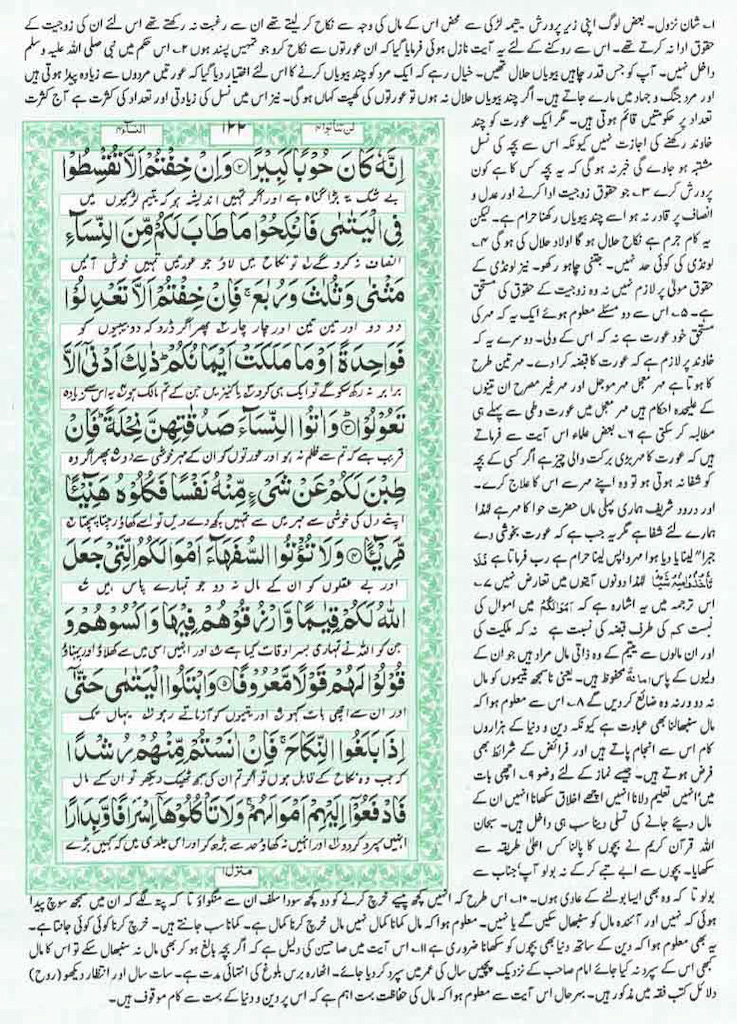 ۱۔ شان نزول۔ بعض لوگ اپنی زیر پرورش یتیمہ لڑکی سے محض اس کے مال کی وجہ سے نکاح کر لیتے تھے ان سے رغبت نہ رکھتے تھے اس لئے ان کی زوجیت کے
حقوق ادا نہ کرتے تھے۔ اس سے روکنے کے لئے یہ آیت نازل ہوئی فرمایا گیا کہ ان عورتوں سے نکاح کرو جو تمہیں پسند ہوں ۲۔ اس حکم میں نبی صلی اللہ علیہ وسلم
داخل نہیں۔ آپ کو جس قدر چاہیں بیویاں حلال تھیں۔ خیال رہے کہ ایک مرد کو چند بیویاں کرنے کا اس لئے اختیار دیا گیا کہ عورتیں مردوں سے زیادہ پیدا ہوتی ہیں
اور مرد جنگ و جہاد میں مارے جاتے ہیں۔ اگر چند بیویاں حلال نہ ہوں تو عورتوں کی کھپت کہاں ہو گی۔ نیز اس میں نسل کی زیادتی اور تعداد کی کثرت ہے آج کثرت
تعداد پر حکومتیں قائم ہوتی ہیں۔ مگر ایک عورت کو چند
خاوند رکھنے کی اجازت نہیں کیونکہ اس سے بچہ کی نسل
مشتبہ ہو جاوے گی خبر نہ ہو گی کہ یہ بچہ کس کا ہے کون
پرورش کرے ۳۔ جو حقوق زوجیت ادا کرنے اور عدل و
انصاف پر قادر نہ ہو اسے چند بیویاں رکھنا حرام ہے۔ لیکن
یہ کام جرم ہے نکاح حلال ہو گا اولاد حلال کی ہو گی ۴۔
لونڈی کی کوئی حد نہیں۔ جتنی چاہو رکھو۔ نیز لونڈی کے
حقوق مولیٰ پر لازم نہیں نہ وہ زوجیت کے حقوق کی مستحق
ہے۔ ۵۔ اس سے دو مسئلے معلوم ہوئے ایک یہ کہ مہر کی
مستحق خود عورت ہے نہ کہ اس کے ولی۔ دوسرے یہ کہ
خاوند پر لازم ہے کہ عورت کا قبضہ کرا دے۔ مہر تین طرح
کا ہوتا ہے مہر معجل مہر موجل اور مہر غیر مصرح ان تینوں
کے علیحدہ احکام ہیں مہر معجل میں عورت وطی سے پہلے ہی
مطالبہ کر سکتی ہے ۶۔ بعض علماء اس آیت سے فرماتے
ہیں کہ عورت کا مہر بڑی برکت والی چیز ہے اگر کسی کے بچہ
کو شفا نہ ہوتی ہو تو وہ اپنے مہر سے اس کا علاج کرے۔
اور درود شریف ہماری پہلی ماں حضرت حوا کا مہر ہے لہٰذا
ہمارے لئے شفا ہے مگر یہ جب ہے کہ عورت بخوشی دے
جبراً لینا یا دیا ہوا مہر واپس لینا حرام ہے رب فرماتا ہے فَلَا
تَأْخُذُوْا مِنْهُ شَیْئًا لہٰذا دونوں آیتوں میں تعارض نہیں ۷۔
اس ترجمہ میں یہ اشارہ ہے کہ اَمْوَالَكُمْ میں اموال کی
نسبت کم کی طرف قبضہ کی نسبت ہے نہ کہ ملکیت کی
اور ان مالوں سے یتیم کے وہ ذاتی مال مراد ہیں جو ان کے
ولیوں کے پاس امانۃً محفوظ ہیں۔ یعنی ناسمجھ یتیموں کو مال
نہ دو ورنہ وہ ضائع کر دیں گے ۸۔ اس سے معلوم ہوا کہ
مال سنبھالنا بھی عبادت ہے کیونکہ دین و دنیا کے ہزاروں
کام اس سے انجام پاتے ہیں اور فرائض کے شرائط بھی
فرض ہوتے ہیں۔ جیسے نماز کے لئے وضو ۹۔ اچھی بات
میں انہیں تعلیم دلانا انہیں اچھے اخلاق سکھانا انہیں ان کے
مال دیئے جانے کی تسلی دینا سب ہی داخل ہیں۔ سبحان
اللہ قرآن کریم نے بچوں کا پالنا کس اعلیٰ طریقہ سے
سکھایا۔ بچوں سے ابے تبے کر کے نہ بولو آپ جناب سے
لن تنالوا ۴
۱۲۲
النسآء ۴
اِنَّهٗ كَانَ حُوْبًا كَبِیْرًا ۲ وَاِنْ خِفْتُمْ اَلَّا تُقْسِطُوْا
بے شک یہ بڑا گناہ ہے اور اگر تمہیں اندیشہ ہو کہ یتیم لڑکیوں میں
فِی الْیَتٰمٰى فَانْكِحُوْا مَا طَابَ لَكُمْ مِّنَ النِّسَآءِ
انصاف نہ کرو گے تو نکاح میں لاؤ جو عورتیں تمہیں خوش آئیں
مَثْنٰى وَثُلٰثَ وَرُبٰعَ ۚ فَاِنْ خِفْتُمْ اَلَّا تَعْدِلُوْا
دو دو اور تین تین اور چار چار پھر اگر ڈرو کہ دو بیبیوں کو
فَوَاحِدَةً اَوْ مَا مَلَكَتْ اَیْمَانُكُمْ ؕ ذٰلِكَ اَدْنٰۤى اَلَّا
برابر نہ رکھ سکو گے تو ایک ہی کرو یا کنیزیں جن کے تم مالک ہو یہ اس سے زیادہ
تَعُوْلُوْا ۳ وَاٰتُوا النِّسَآءَ صَدُقٰتِهِنَّ نِحْلَةً ؕ فَاِنْ
قریب ہے کہ تم سے ظلم نہ ہو اور عورتوں کو ان کے مہر خوشی سے دو پھر اگر وہ
طِبْنَ لَكُمْ عَنْ شَیْءٍ مِّنْهُ نَفْسًا فَكُلُوْهُ هَنِیْٓئًا
اپنے دل کی خوشی سے مہر میں سے تمہیں کچھ دے دیں تو اسے کھاؤ رچتا پچتا
مَّرِیْٓئًا ۴ وَلَا تُؤْتُوا السُّفَهَآءَ اَمْوَالَكُمُ الَّتِیْ جَعَلَ
اور بے عقلوں کو ان کے مال نہ دو جو تمہارے پاس ہیں
اللّٰهُ لَكُمْ قِیٰمًا وَّارْزُقُوْهُمْ فِیْهَا وَاكْسُوْهُمْ وَ
جن کو اللہ نے تمہاری بسر اوقات کیا ہے اور انہیں اس میں سے کھلاؤ اور پہناؤ
قُوْلُوْا لَهُمْ قَوْلًا مَّعْرُوْفًا ۵ وَابْتَلُوا الْیَتٰمٰى حَتّٰۤى
اور ان سے اچھی بات کہو اور یتیموں کو آزماتے رہو یہاں تک
اِذَا بَلَغُوا النِّكَاحَ ۚ فَاِنْ اٰنَسْتُمْ مِّنْهُمْ رُشْدًا
کہ جب وہ نکاح کے قابل ہوں تو اگر تم ان کی سمجھ ٹھیک دیکھو تو ان کے مال
فَادْفَعُوْۤا اِلَیْهِمْ اَمْوَالَهُمْ ۚ وَلَا تَاْكُلُوْهَاۤ اِسْرَافًا وَّبِدَارًا
انہیں سپرد کر دو اور انہیں نہ کھاؤ حد سے بڑھ کر اور اس جلدی میں کہ کہیں بڑے
منزل ۱
بولو تا کہ وہ بھی ایسا بولنے کے عادی ہوں۔ ۱۰۔ اس طرح کہ انہیں کچھ پیسے خرچ کرنے کو دو کچھ سودا سلف ان سے منگواؤ تا کہ پتہ لگے کہ ان میں سمجھ سوچ پیدا
ہوئی کہ نہیں اور آئندہ مال کو سنبھال سکیں گے یا نہیں۔ معلوم ہوا کہ مال کمانا کمال نہیں مال خرچ کرنا کمال ہے۔ کمانا سب جانتے ہیں۔ خرچ کرنا کوئی کوئی جانتا ہے۔
یہ بھی معلوم ہوا کہ دین کے ساتھ دنیا بھی بچوں کو سکھانا ضروری ہے ۱۱۔ اس آیت میں صاحبین کی دلیل ہے کہ اگر بچہ بالغ ہو کر بھی مال نہ سنبھال سکے تو اس کا مال
کبھی اس کے سپرد نہ کیا جائے امام صاحب کے نزدیک پچیس سال کی عمر میں سپرد کر دیا جائے۔ اٹھارہ برس بلوغ کی انتہائی مدت ہے۔ سات سال اور انتظار دیکھو (روح)
دلائل کتب فقہ میں مذکور ہیں۔ بہرحال اس آیت سے معلوم ہوا کہ مال کی حفاظت بہت اہم ہے کہ اس پر دین و دنیا کے بہت سے کام موقوف ہیں۔